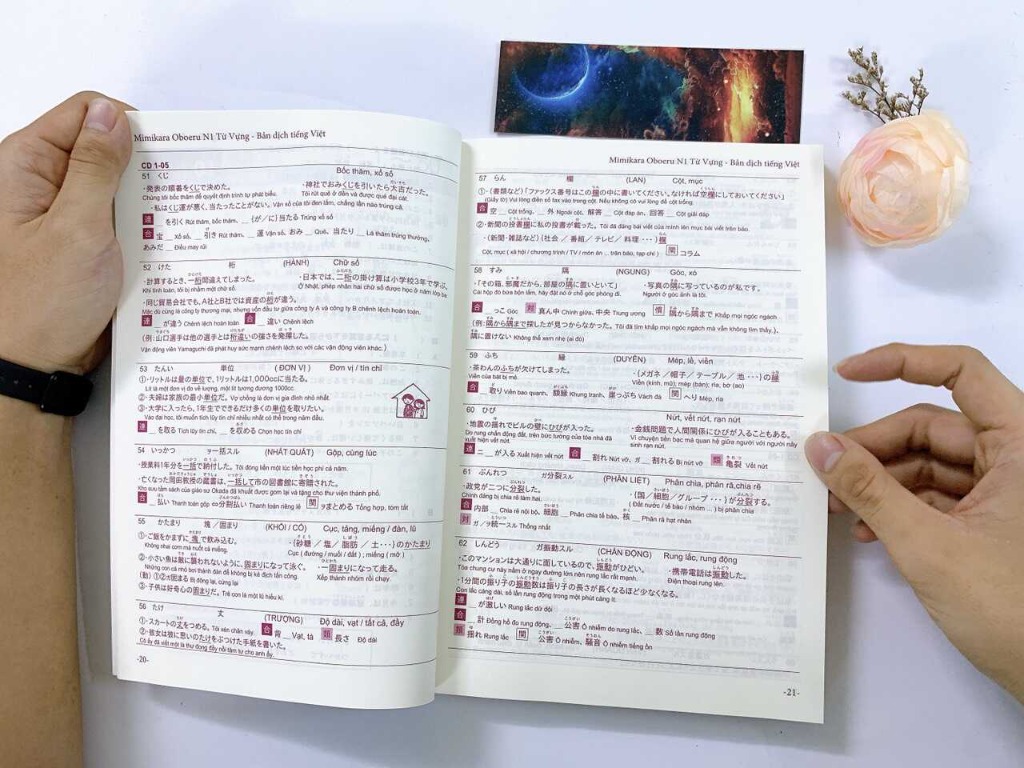 Mimikara Oboeru N1 Từ Vựng - Bản dịch tiếng Việt
CD 1-05
51 くじ Bốc thăm, xổ số
・発表の順番をくじで決めた。 ・神社でおみくじを引いたら大吉だった。
Chúng tôi bốc thăm để quyết định trình tự phát biểu. Tôi rút quẻ ở đền và được quẻ đại cát.
・私はくじ運が悪く、当たったことがない。 Vận số của tôi đen lắm, chẳng lần nào trúng cả.
連 __を引く Rút thăm, bốc thăm, __(が／に)当たる Trúng xổ số
合 宝__ Xổ số, __引き Rút thăm, __運 Vận số, おみ__ Quẻ, 当たり__ Lá thăm trúng thưởng,
あみだ__ Điều may rủi
52 けた 桁 (HÀNH) Chữ số
・計算するとき、一桁間違えてしまった。 ・日本では、二桁の掛け算は小学校3年で学ぶ。
Khi tính toán, tôi bị nhầm một chữ số. Ở Nhật, phép nhân hai chữ số được học ở năm lớp ba.
・同じ貿易会社でも、A社とB社では資産の桁が違う。
Mặc dù cùng là công ty thương mại, nhưng vốn đầu tư giữa công ty A và công ty B chênh lệch hoàn toàn.
連 __が違う Chênh lệch hoàn toàn 合 __違い Chênh lệch
(例：山口選手は他の選手とは桁違いの強さを発揮した。
Vận động viên Yamaguchi đã phát huy sức mạnh chênh lệch so với các vận động viên khác.)
53 たんい 単位 (ĐƠN VỊ) Đơn vị / tín chỉ
①・リットルは量の単位で、1リットルは1,000ccに当たる。
Lít là một đơn vị đo về lượng, một lít tương đương 1000cc.
②・夫婦は家族の最小単位だ。 Vợ chồng là đơn vị gia đình nhỏ nhất.
③・大学に入ったら、1年生でできるだけ多くの単位を取りたい。
Vào đại học, tôi muốn tích lũy tín chỉ nhiều nhất có thể trong năm đầu.
連 __を取る Tích lũy tín chỉ, __を収める Chọn học tín chỉ
54 いっかつ ヲ一括スル (NHẤT QUÁT) Gộp, cùng lúc
・授業料1年分を一括で納付した。 Tôi đóng liền một lúc tiền học phí cả năm.
・亡くなった岡田教授の蔵書は、一括して市の図書館に寄贈された。
Kho sưu tầm sách của giáo sư Okada đã khuất được gom lại và tặng cho thư viện thành phố.
合 __払い Thanh toán gộp ⇔分割払い Thanh toán riêng lẻ 関 ヲまとめる Tổng hợp, tóm tắt
55 かたまり 塊／固まり (KHỐI / CỐ) Cục, tảng, miếng / đàn, lũ
①・ご飯をかまずに塊で飲み込む。 ・(砂糖／塩／脂肪／土・・・)のかたまり
Không nhai cơm mà nuốt cả miếng. Cục ( đường / muối / đất ); miếng ( mỡ )
②・小さい魚は敵に襲われないように、固まりになって泳ぐ。 ・一固まりになって走る。
Những con cá nhỏ bơi thành đàn để không bị kẻ địch tấn công. Xếp thành nhóm rồi chạy.
(動)①②ガ固まる Bị đông lại, cứng lại
③・子供は好奇心の固まりだ。 Trẻ con là một lũ hiếu kì.
56 たけ 丈 (TRƯỢNG) Độ dài, vạt / tất cả, đầy
①・スカートの丈をつめる。 Tôi xén chân váy. 合 背__ Vạt, tà 類 長さ Độ dài
②・彼女は彼に思いのたけをぶつけた手紙を書いた。
Cô ấy đã viết một lá thư đong đầy nỗi tâm tư cho anh ấy.
-20-
Mimikara Oboeru N1 Từ Vựng - Bản dịch tiếng Việt
57 らん 欄 (LAN) Cột, mục
①・(書類など)「ファックス番号はこの欄の中に書いてください。なければ空欄にしておいてください」
(Giấy tờ) Vui lòng điền số fax vào trong cột. Nếu không có vui lòng để cột trống.
合 空__ Cột trống, __外 Ngoài cột, 解答__ Cột đáp án, 回答__ Cột giải đáp
②・新聞の投書欄に私の投書が載った。 Tôi đã đăng bài viết của mình lên mục bài viết trên báo.
・(新聞・雑誌など)(社会／番組／テレビ／料理・・・)欄
Cột, mục ( xã hội / chương trình / TV / món ăn ... trên báo, tạp chí ) 関 コラム
58 すみ 隅 (NGUNG) Góc, xó
・「その箱、邪魔だから、部屋の隅に置いといて」 ・写真の隅に写っているのが私です。
Cái hộp đó bừa bộn lắm, hãy đặt nó ở chỗ góc phòng đi. Người ở góc ảnh là tôi.
合 __っこ Góc 対 真ん中 Chính giữa, 中央 Trung ương 慣 隅から隅まで Khắp mọi ngóc ngách
(例：隅から隅まで探したが見つからなかった。 Tôi đã tìm khắp mọi ngóc ngách mà vẫn không tìm thấy.),
隅に置けない Không thể xem nhẹ (ai đó)
59 ふち 縁 (DUYÊN) Mép, lề, viền
・茶わんのふちが欠けてしまった。 ・(メガネ／帽子／テーブル／池・・・)の縁
Viền của bát bị mẻ. Viền (kính, mũ); mép (bàn); rìa, bờ (ao)
合 __取り Viền bao quanh, 額縁 Khung tranh, 崖っぷち Vách đá 関 へり Mép, rìa
60 ひび Nứt, vết nứt, rạn nứt
・地震の揺れでビルの壁にひびが入った。 ・金銭問題で人間関係にひびが入ることもある。
Do rung chấn động đất, trên bức tường của tòa nhà đã xuất hiện vết nứt. Vì chuyện tiền bạc mà quan hệ giữa người với người nảy sinh rạn nứt.
連 __が入る Xuất hiện vết nứt 合 __割れ Nứt vỡ, ガ__割れる Bị nứt vỡ 類 亀裂 Vết nứt
61 ぶんれつ ガ分裂スル (PHÂN LIỆT) Phân chia, phân rã, chia rẽ
・政党が二つに分裂した。 ・(国／細胞／グループ・・・)が分裂する。
Chính đảng bị chia rẽ làm hai. ( Đất nước / tế bào / nhóm ... ) bị phân chia
合 内部__ Chia rẽ nội bộ, 細胞__ Phân chia tế bào, 核__ Phân rã hạt nhân
対 ガ／ヲ統一スル Thống nhất
62 しんどう ガ振動スル (CHẤN ĐỘNG) Rung lắc, rung động
・このマンションは大通りに面しているので、振動がひどい。 ・携帯電話が振動した。
Tòa chung cư này nằm ở ngay đường lớn nên rung lắc rất mạnh. Điện thoại rung lên.
・1分間の振り子の振動数は振り子の長さが長くなるほど少なくなる。
Con lắc càng dài, số lần rung động trong một phút càng ít.
連 __が激しい Rung lắc dữ dội
合 __計 Đồng hồ đo rung động, __公害 Ô nhiễm do rung lắc, __数 Số lần rung động
類 揺れ Rung lắc 関 公害 Ô nhiễm, 騒音 Ô nhiễm tiếng ồn
-21-